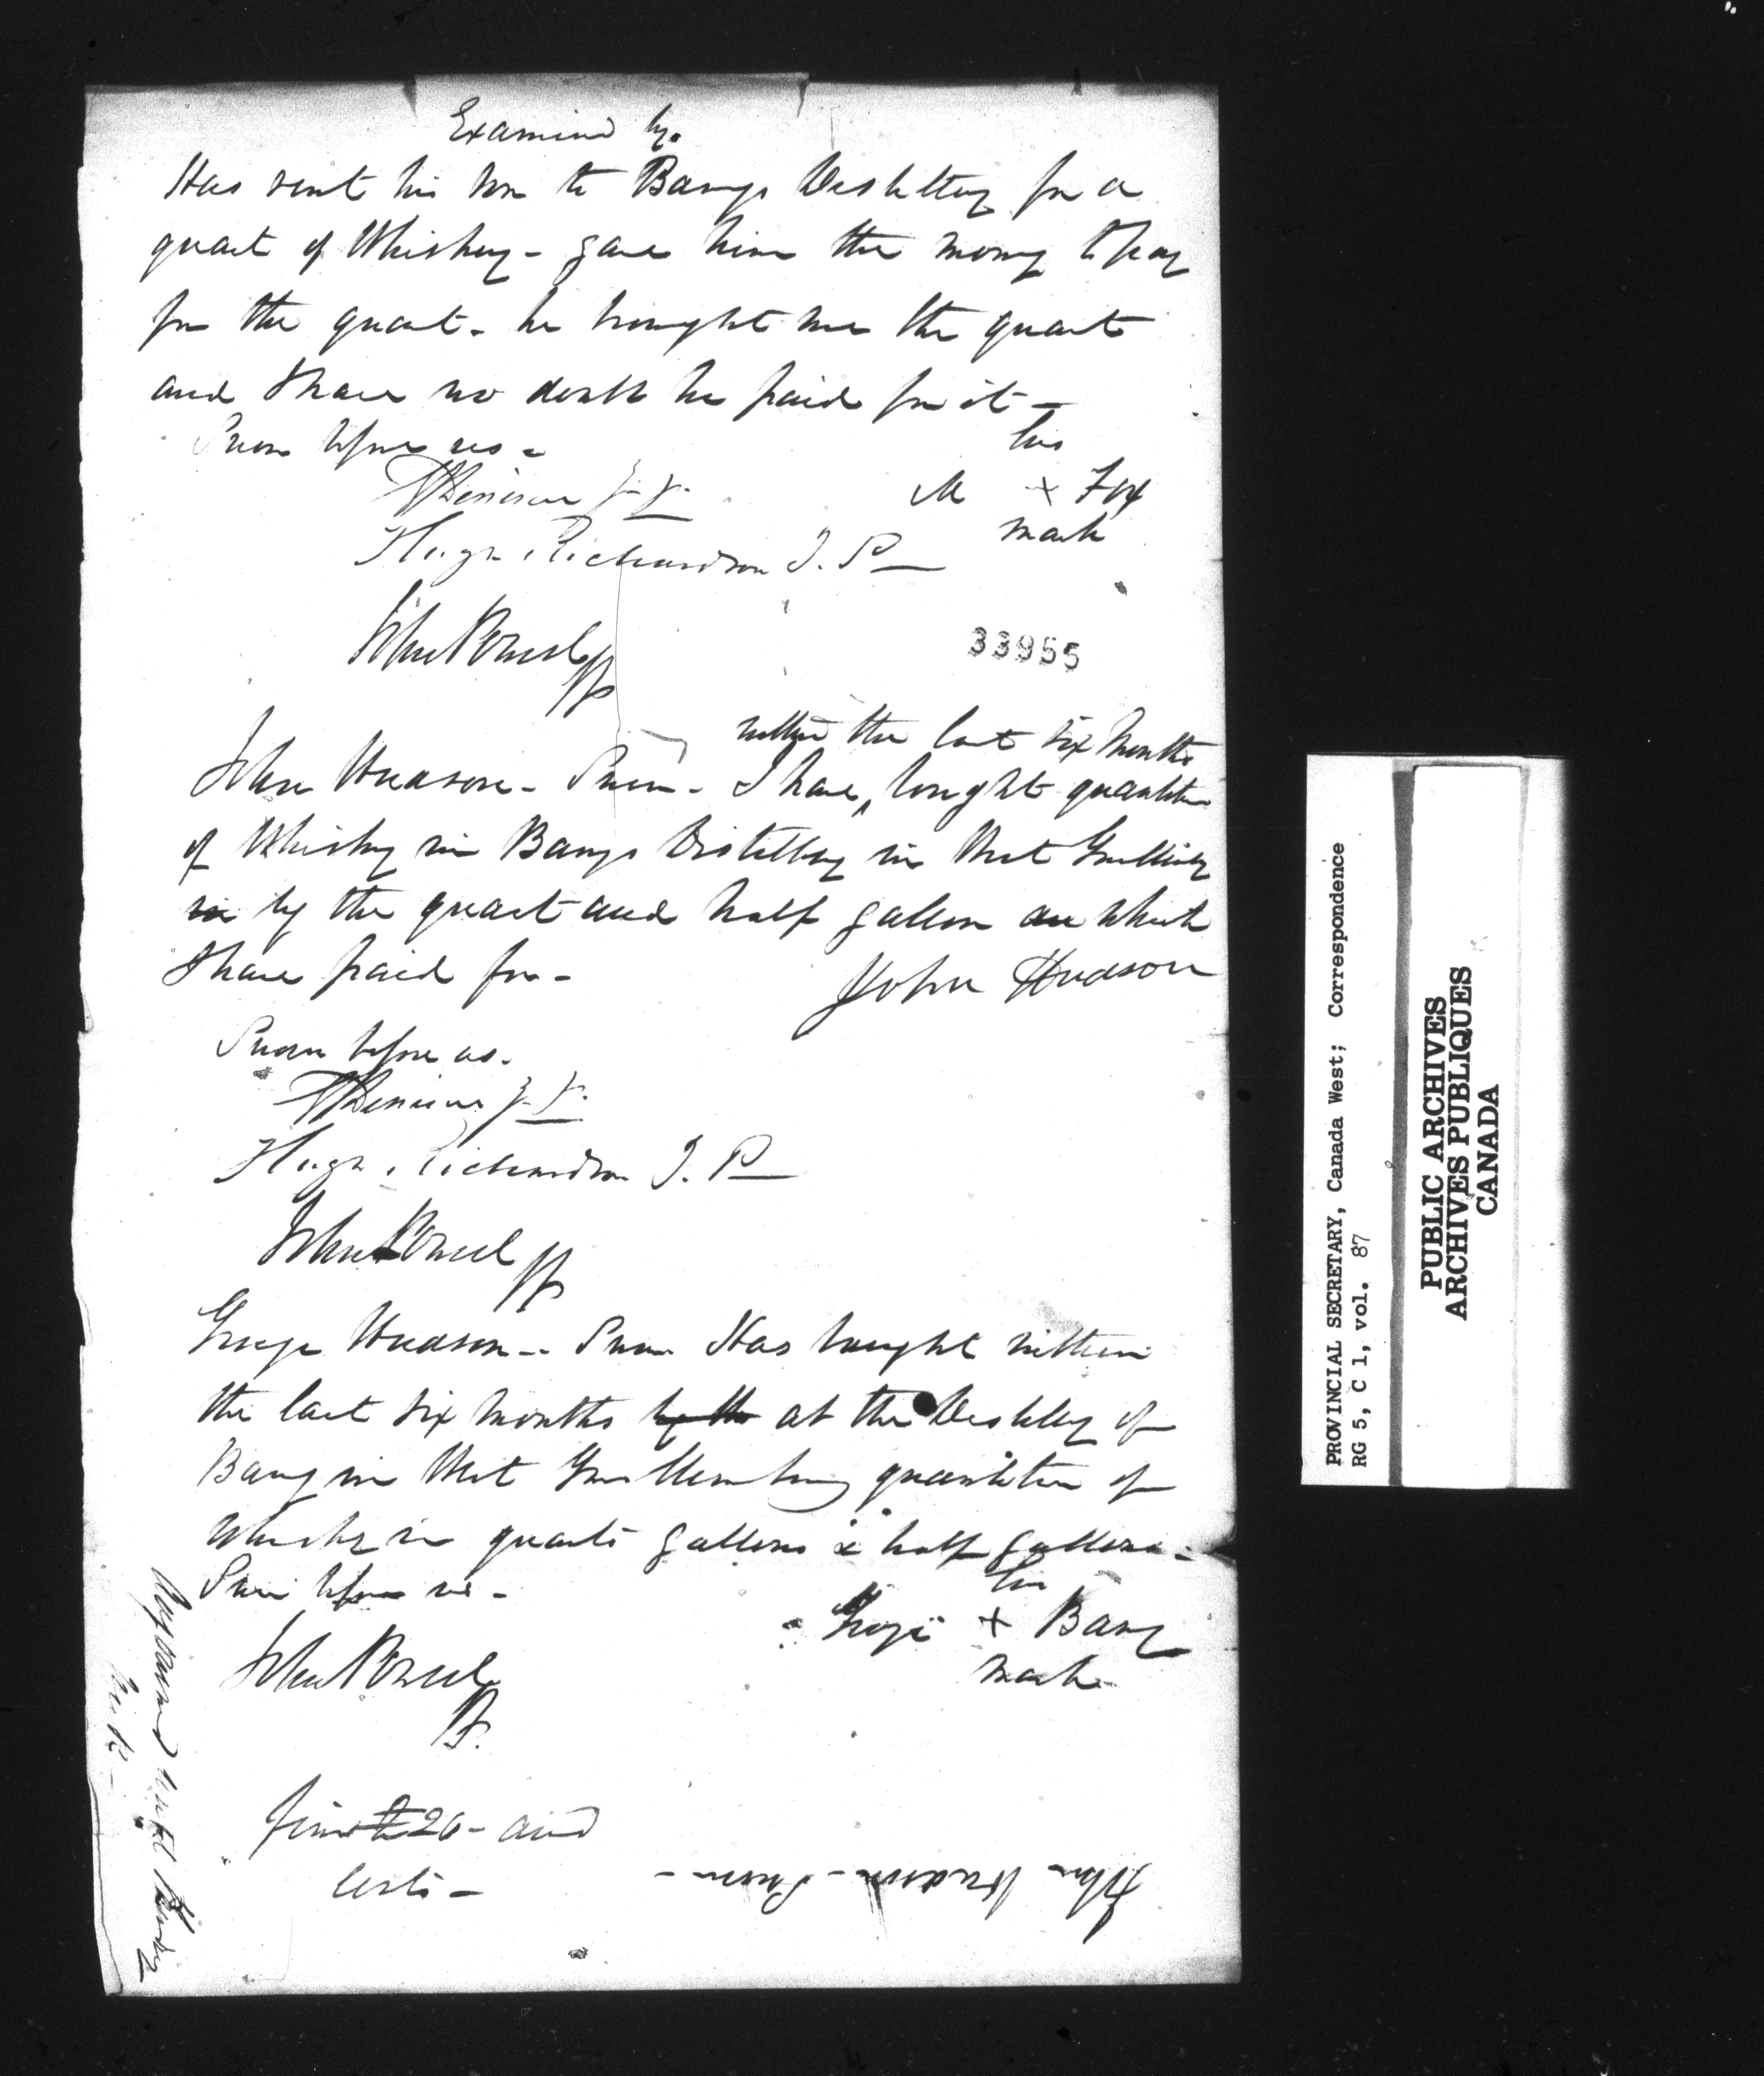 Examined by
Has sent his son to Bangs Distillery for a
quart of Whiskey - gave him the money to pay
for the quart - he brought me the quart
and I have no doubt he paid for it -
Sworn before us -
his
M x Fox
mark
Denison J. P.
Hugh Richardson J. P
John Powell JP
33955
within the last six Months
John Hudson - Sworn - I have, bought quantities
of Whisky in Bangs Distillery in West
in by the quart and half gallon an which
I have paid for -
John Hudson
Sworn before us -
Denison J. P.
Hugh Richardson J. P
John Powell JP
George Hudson - Sworn Has bought within
the last six months by the at the Distillery of
Bang in West quantities of
Whisky in quarts gallons & half gallons -
Sworn before us -
his
George x Bang
mark
John Powell
JP.
Adjourned until
Fined £20 - and
Costs -
John Hudson - Sworn -
PROVINCIAL SECRETARY, Canada West; Correspondence
RG 5, C 1, vol. 87
PUBLIC ARCHIVES
ARCHIVES PUBLIQUES
CANADA